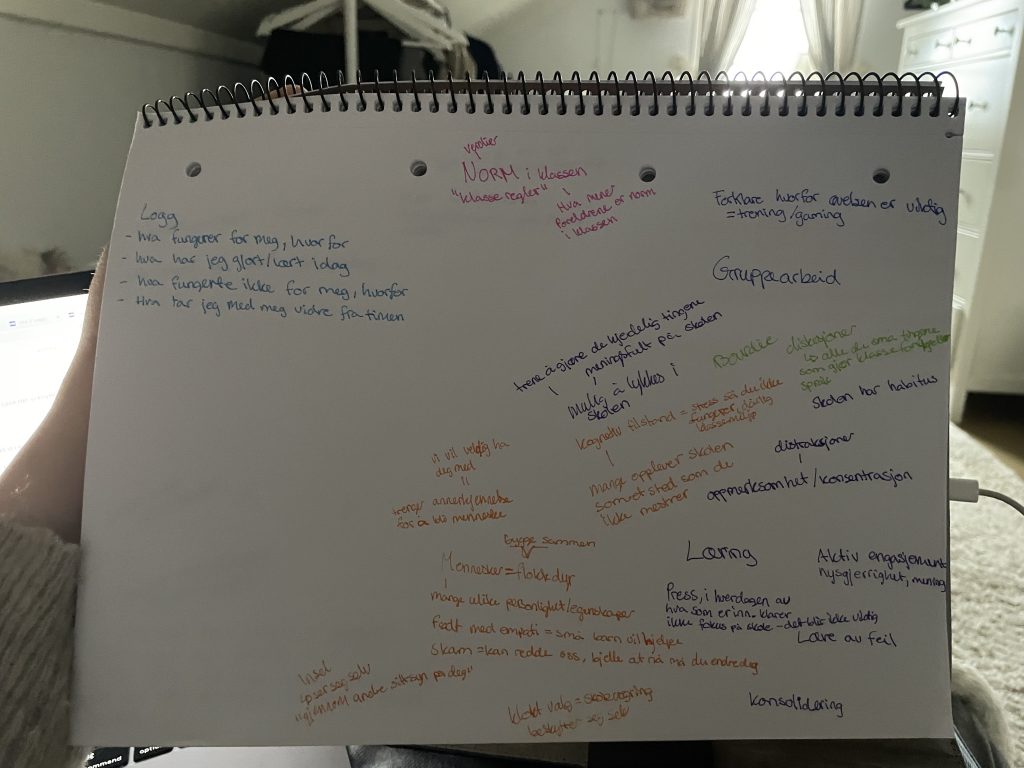 verdier
NORM i klassen
"klasseregler"
Hva mener
foreldrene er norm
i klassen
Logg
- hva fungerer for meg, hvorfor
- hva har jeg gjort/lært i dag
- hva fungerte ikke for meg, hvorfor
- Hva tar jeg med meg vidre fra timen
Forklare hvorfor øvelsen er viktig
= trening/gaming
Gruppearbeid
trene å gjøre de kjedelig tingene
meningsfult på skolen
mulig å lykkes i
skolen
Bourdie
alle de små tingene
som gjør klasseforskjeller
språk
skolen har habitus
kognetiv tilstand = stress så du ikke
fungerer
mange opplever skolen
som et sted som du
ikke mestrer
distraksjoner
oppmerksomhet/konsentrasjon
vi vil veldig ha
deg med
trenger annerkjennelse
for å bli menneske
bygge sammen
Mennesker = flokkdyr
mange ulike personlighet/egenskaper
Født med empati = små barn vil hjelpe
skam = kan redde oss, bjelle at nå må du endre deg
Læring
Aktiv engasjement
nysgjerrighet, mening
Press, i hverdagen av
hva som er inn. klarer
ikke fokus på skole - det blir ikke viktig
Lære av feil
konsolidering
Insel
speiler seg selv
"gjennom andre sitt syn på deg"
klokt valg = skolevegring
beskytter seg selv